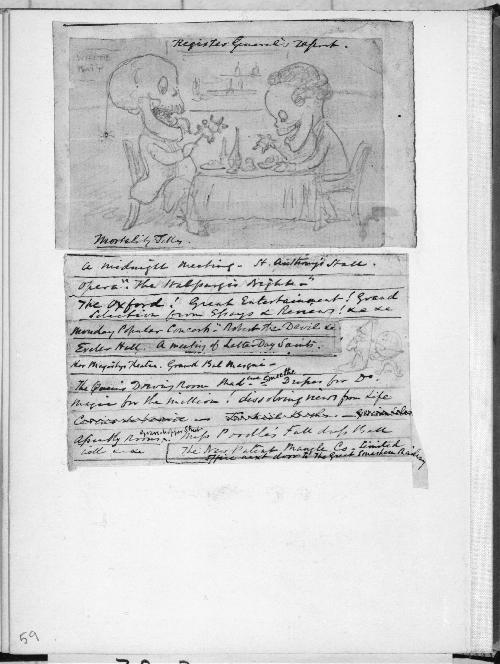 Register General's report.
WHITE
BAIT
Mortality Tilly.
A midnight meeting - St. Anthony's Stall.
Opera "The Walpurgis Night"
The Oxford! Great Entertainment! Grand
Selection from Essays & Reviews! &c &c
Monday Popular Concerts "Robert the Devil &c
Exeter Hall. A meeting of Latter Day Saints.
Her Majestys Theatre. Grand Bal Masqué -
The Queen's Drawing Room Mad me Dupes for Do.
Magic for the million! dissolving views from Life
Assembly Rooms. Miss Poodle's Full dress Ball
&c &c
The New Patent Mangle Co - Limited
Office next door to the Great Railway
59